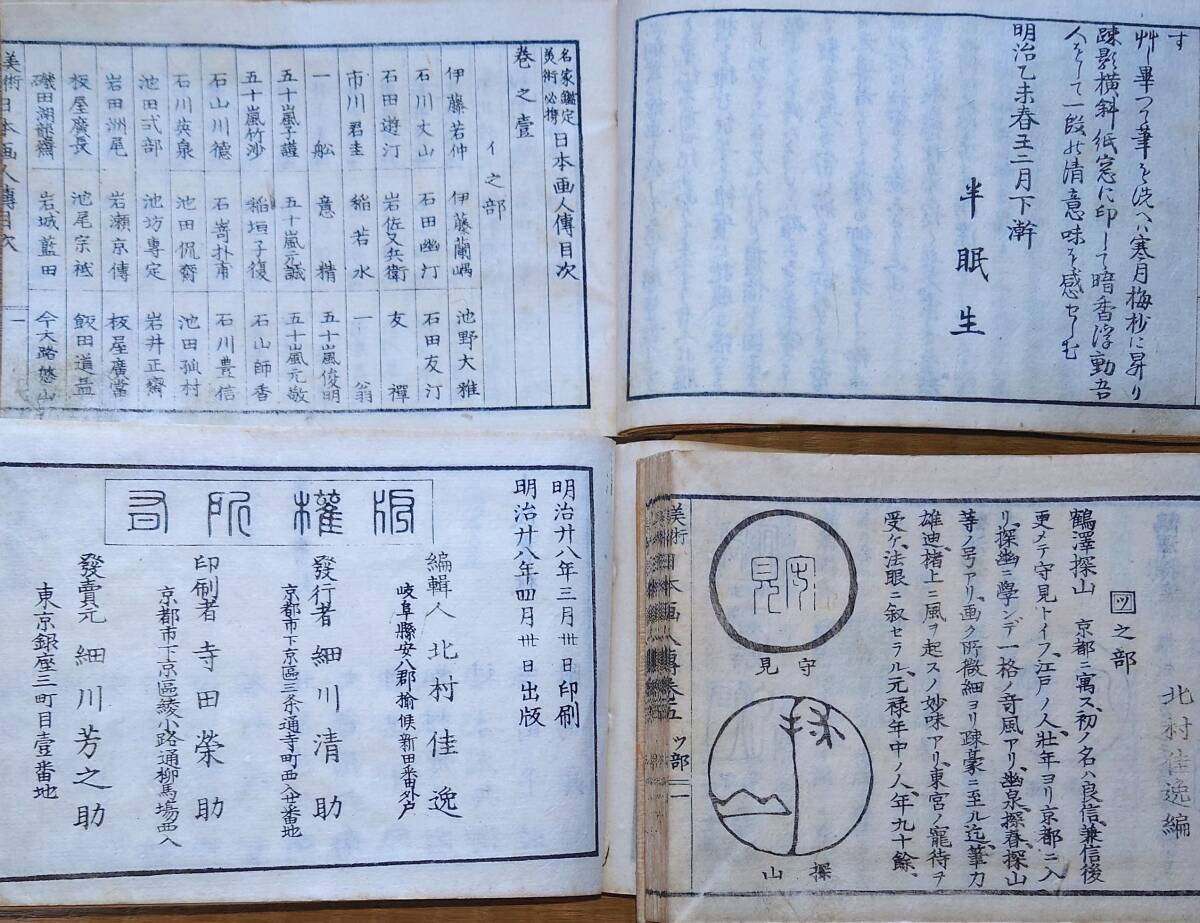 す
艸畢つて筆を洗へハ寒月梅梢に昇り
疎影横斜紙窓に印して暗香浮動吾
人をして一段の清意味を感せしむ
明治乙未春王二月下澣
半眠生
名家鑑定
美術必携
日本画人傳目次
卷之壹
イ之部
伊藤若仲 伊藤蘭嵎 池野大雅
石川丈山 石田幽汀 石田友汀
石田遊汀 岩佐又兵衛 友禪
市川君圭 稲若水 一翁
一舩 意精 五十嵐俊明
五十嵐子謹 五十嵐元誠 五十嵐元敬
五十嵐竹沙 稲垣子復 石山師香
石山川德 石嵜扑甫 石川豊信
石川英泉 池田侃齋 池田孤村
池田弍部 池坊專定 岩井正齋
岩田洲尾 岩瀬京傳 板屋廣當
板屋廣長 池尾宗祇 飯田道益
磯田湖龍齋 岩城藍田 今大路悠山
美術日本画人傳目次 一
北村佳逸編
ツ之部
鶴澤探山 京都ニ寓ス、初ノ名ハ良信、兼信後
更メテ守見トイフ、江戸ノ人、壮年ヨリ京都ニ入
リ、探幽ニ學ンデ一格ノ奇風アリ、幽泉、探春、探山
等ノ号アリ、画ク所微細ヨリ疎豪ニ至ル迄、筆力
雄迪、楮上ニ風ヲ起スノ妙味アリ、東宮ノ寵待ヲ
受ケ、法眼ニ叙セラル、元禄年中ノ人、年九十餘、
守見
守見
探山
美術日本画人傳卷五 ツ部 一
明治廿八年三月卅日印刷
明治廿八年四月卅日出版
版權所有
編輯人 北村佳逸
岐阜縣安八郡揄候新田番外戸
發行者 細川清助
京都市下京區三条通寺町西入廿番地
印刷者 寺田榮助
京都市下京區綾小路通柳馬場西入
發賣元 細川芳之助
東京銀座三町目壹番地